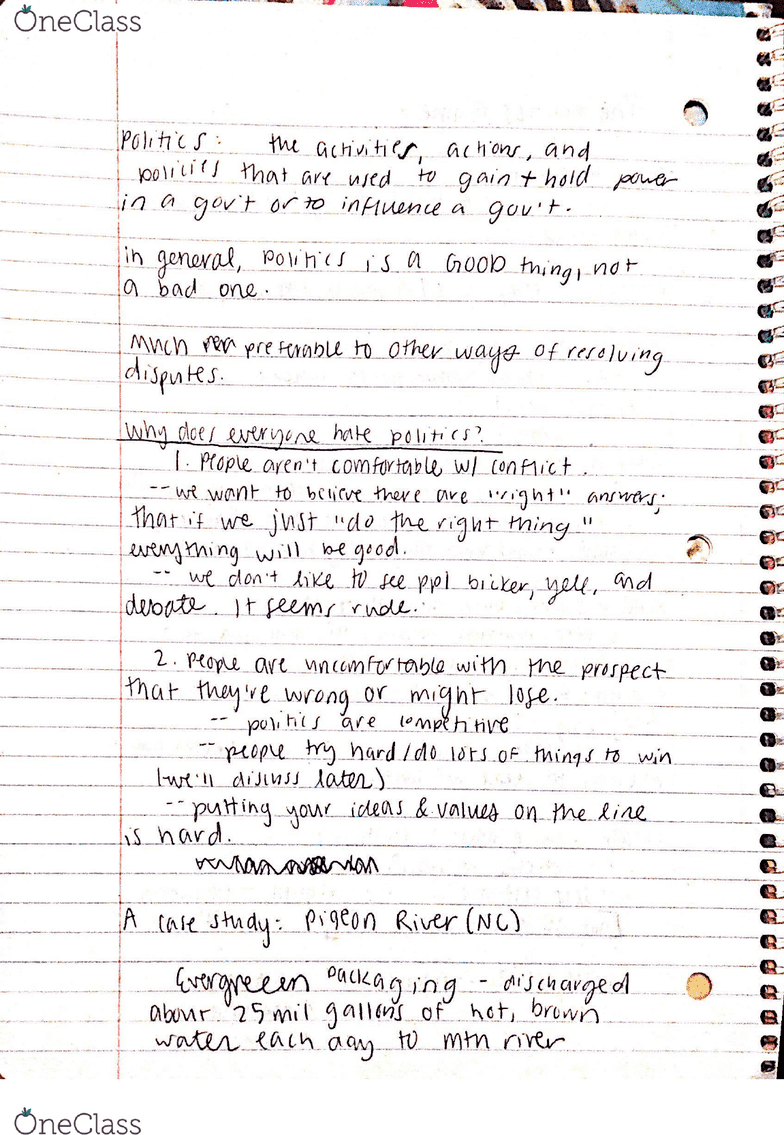 OneClass
Politics: the activities, actions, and
policies that are used to gain + hold power
in a gov't or to influence a gov't.
in general, politics is a GOOD thing, not
a bad one.
Much preferable to other ways of resolving
disputes.
Why does everyone hate politics?
1. People aren't comfortable w/ conflict.
-- we want to believe there are "right" answers;
that if we just "do the right thing"
everything will be good.
-- we don't like to see ppl bicker, yell, and
debate. It seems rude.
2. People are uncomfortable with the prospect
that they're wrong or might lose.
-- politics are competitive
-- people try hard/do lots of things to win
(we'll discuss later)
-- putting your ideas & values on the line
is hard.
A case study: Pigeon River (NC)
Evergreeen Packaging - discharged
about 25 mil gallons of hot, brown
water each day to mtn river
OneClass